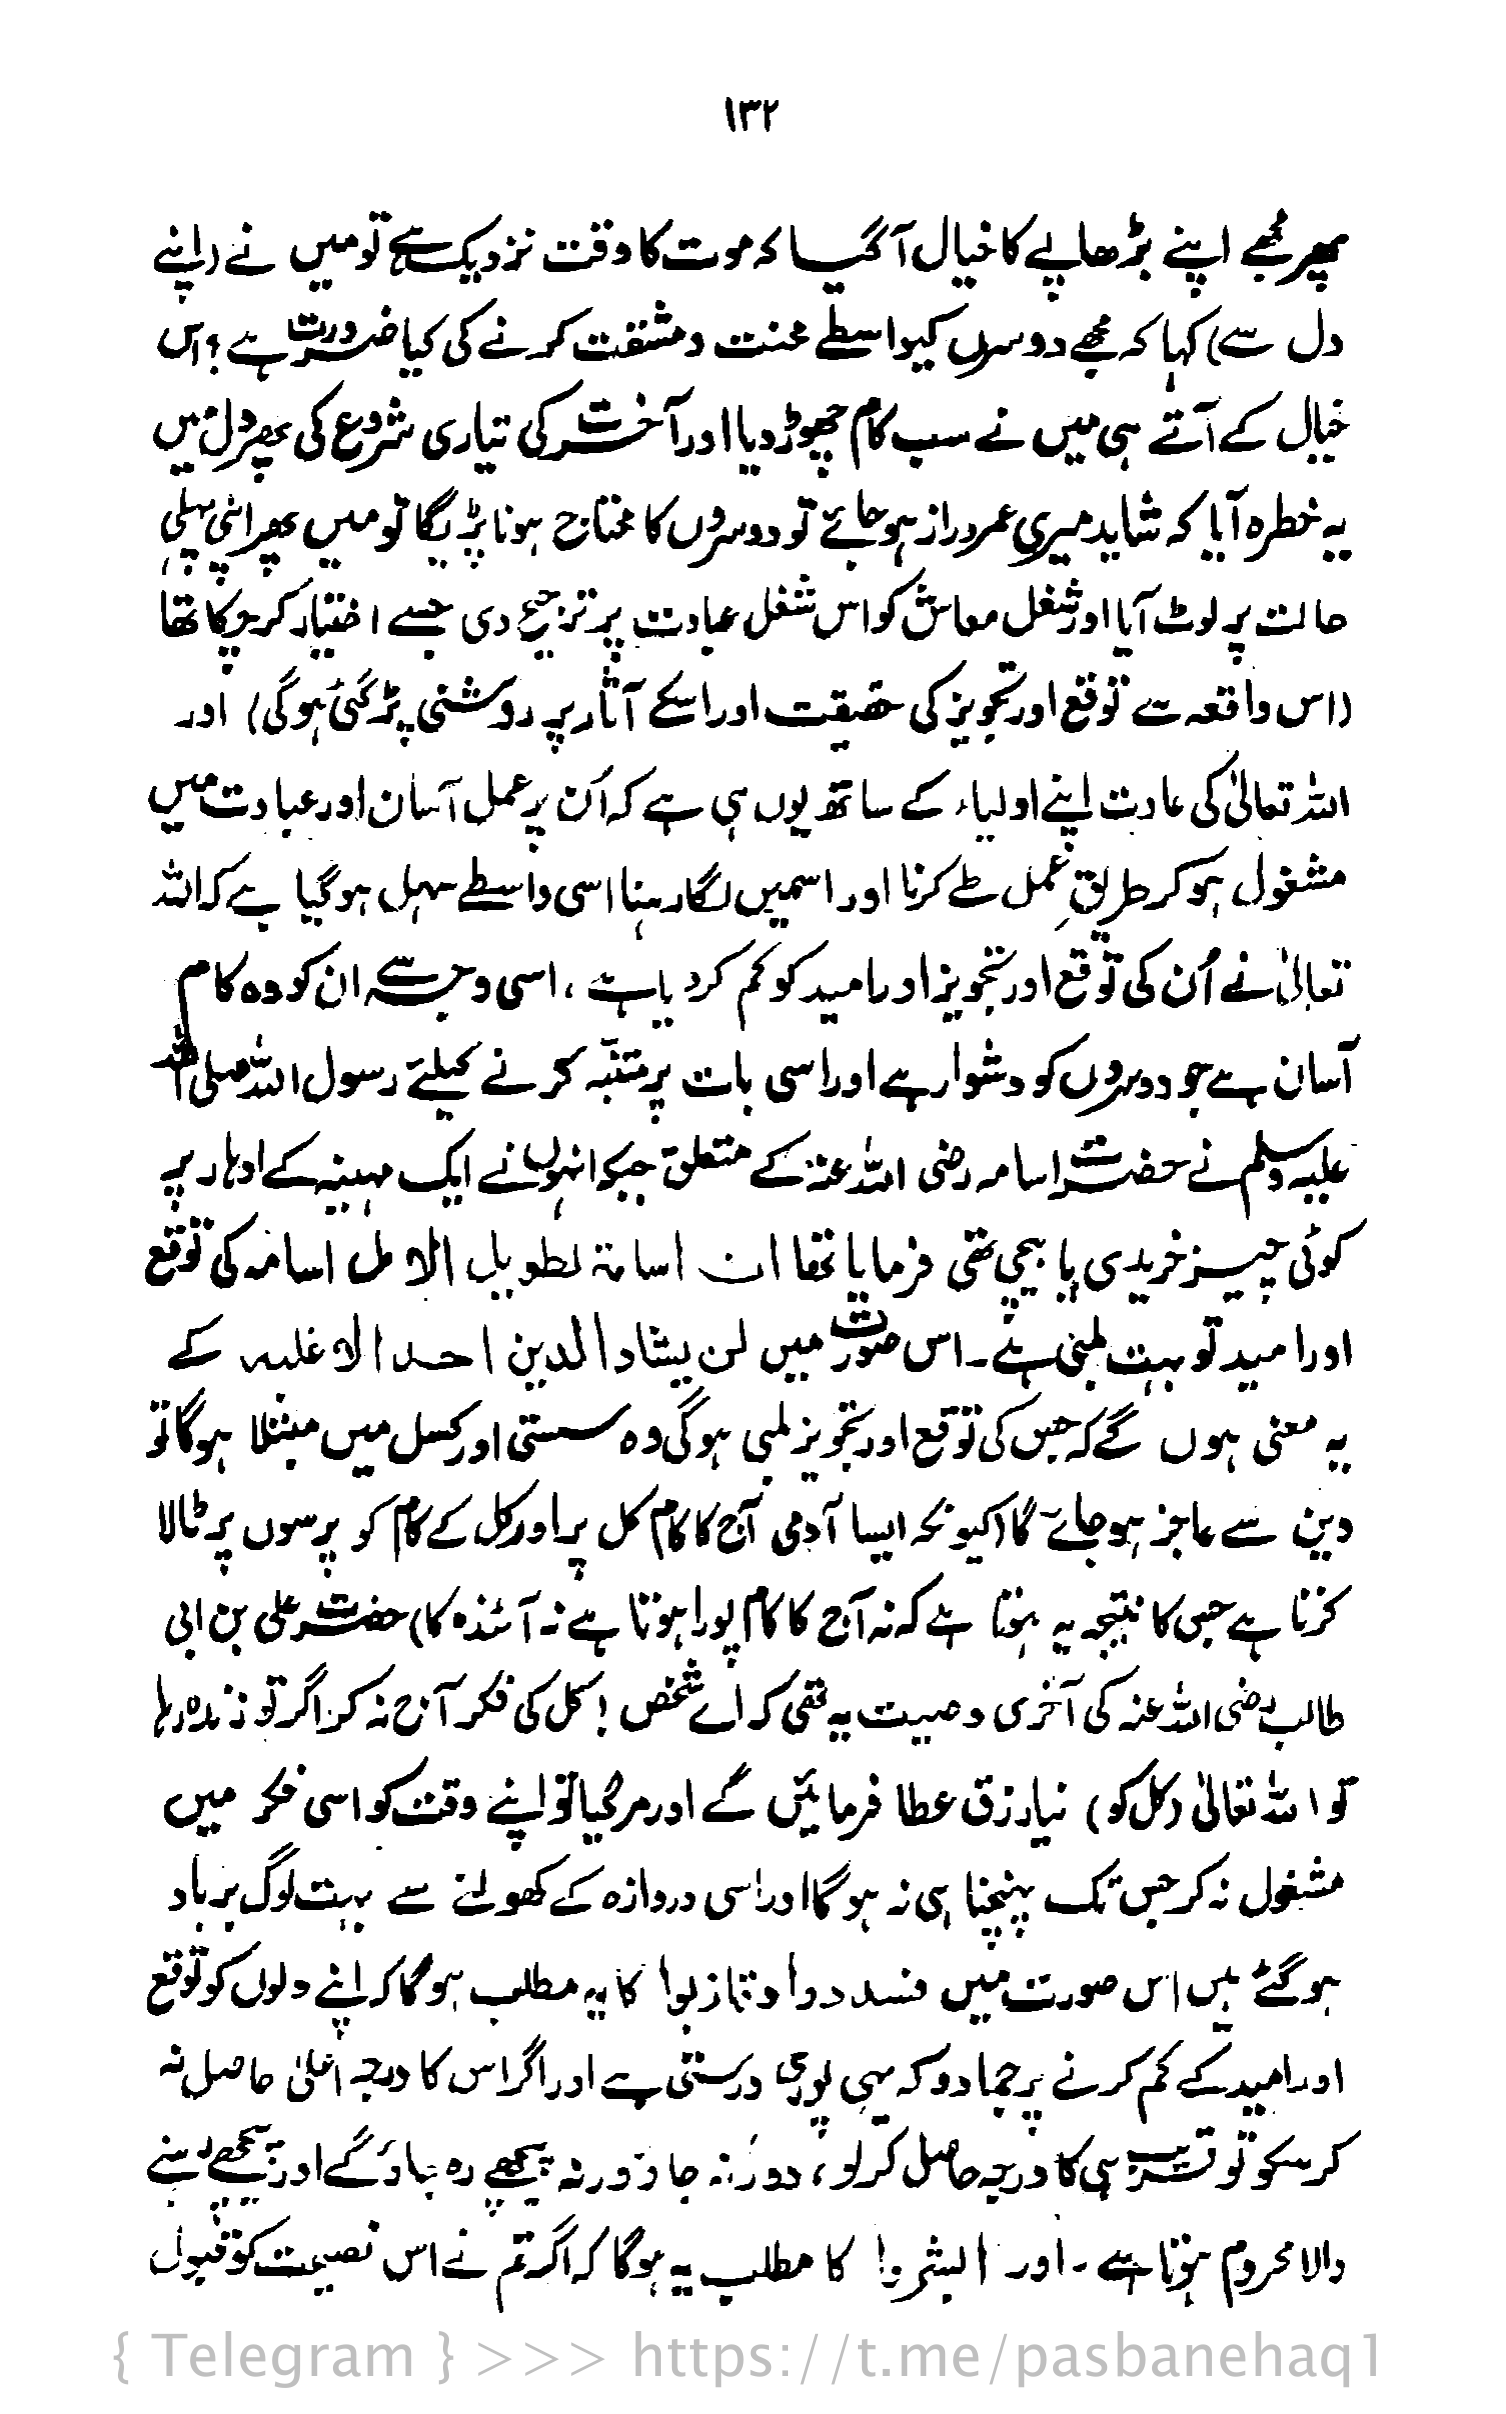 ۱۳۲
پھر مجھے اپنے بڑھاپے کا خیال آگیا کہ موت کا وقت نزدیک ہے تو میں نے (اپنے
دل سے) کہا کہ مجھے دوسروں کیواسطے محنت و مشقت کرنے کی کیا ضرورت ہے؟ اس
خیال کے آتے ہی میں نے سب کام چھوڑ دیا اور آخرت کی تیاری شروع کی پھر دل میں
یہ خطرہ آیا کہ شاید میری عمر دراز ہو جائے تو دوسروں کا محتاج ہونا پڑیگا تو میں پھر اپنی پہلی
حالت پر لوٹ آیا اور شغل معاش کو اس شغل عبادت پر ترجیح دی جسے اختیار کر چکا تھا
(اس واقعہ سے توقع اور تجویز کی حقیقت اور اسکے آثار پر روشنی پڑ گئی ہو گی) اور
اللہ تعالیٰ کی عادت اپنے اولیاء کے ساتھ یوں ہی ہے کہ اُن پر عمل آسان اور عبادت میں
مشغول ہو کر طریقِ عمل طے کرنا اور اسمیں لگا رہنا اسی واسطے سہل ہو گیا ہے کہ اللہ
تعالیٰ نے اُن کی توقع اور تجویز اور امید کو کم کر دیا ہے، اسی وجہ سے ان کو وہ کام
آسان ہے جو دوسروں کو دشوار ہے اور اسی بات پر متنبّہ کرنے کیلئے رسول اللہ صلی اللہ
علیہ وسلم نے حضرت اسامہ رضی اللہ عنہ کے متعلق جبکہ انہوں نے ایک مہینہ کے ادہار پر
کوئی چیز خریدی یا بیچی تھی فرمایا تھا ان اسامۃ لطویل الامل اسامہ کی توقع
اور امید تو بہت لمبی ہے۔ اس صورت میں لن یشاد الدین احد الا غلبہ کے
یہ معنی ہوں گے کہ جس کی توقع اور تجویز لمبی ہو گی وہ سستی اور کسل میں مبتلا ہو گا تو
دین سے عاجز ہو جائے گا (کیونکہ ایسا آدمی آج کا کام کل پر اور کل کے کام کو پرسوں پر ٹالا
کرتا ہے جس کا نتیجہ یہ ہوتا ہے کہ نہ آج کا کام پورا ہوتا ہے نہ آئندہ کا) حضرت علی بن ابی
طالب رضی اللہ عنہ کی آخری وصیت یہ تھی کہ اے شخص! کل کی فکر آج نہ کر اگر تو زندہ رہا
تو اللہ تعالیٰ (کل کو) نیا رزق عطا فرمائیں گے اور مر گیا تو اپنے وقت کو اسی فکر میں
مشغول نہ کر جس تک پہنچنا ہی نہ ہو گا اور اسی دروازہ کے کھولنے سے بہت لوگ برباد
ہو گئے ہیں اس صورت میں فسددوا وقاربوا کا یہ مطلب ہو گا کہ اپنے دلوں کو توقع
اور امید کے کم کرنے پر جما دو کہ یہی پوری درستی ہے اور اگر اس کا درجہ اعلیٰ حاصل نہ
کر سکو تو قریب ہی کا درجہ حاصل کر لو، دور نہ جاؤ ورنہ پیچھے رہ جاؤ گے اور پیچھے رہنے
والا محروم ہوتا ہے۔ اور ابشروا کا مطلب یہ ہو گا کہ اگر تم نے اس نصیحت کو قبول
{ Telegram } >>> https://t.me/pasbanehaq1